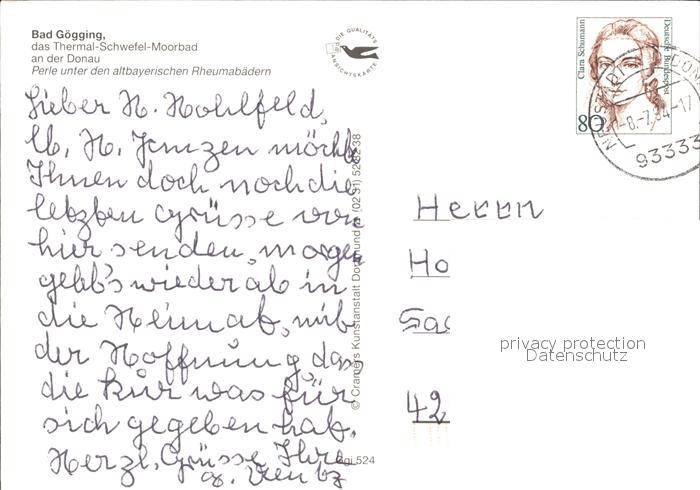 Bad Gögging,
das Thermal-Schwefel-Moorbad
an der Donau
Perle unter den altbayerischen Rheumabädern
DIE QUALITÄTS
ANSICHTSKARTE
Clara Schumann
Deutsche Bundespost
80
93333
Lieber H. Hohlfeld,
U. H. Janzen möcht
Ihnen doch noch die
letzten Grüsse von
hier senden, morgen
geht's wieder ab in
die Heimat, mit
der Hoffnung, das
die Kur was für
sich gegeben hat.
Herzl. Grüsse Ihre
© Cramers Kunstanstalt Dortmund (02 31)
ggi 524
Herrn
Ho
42
privacy protection
Datenschutz